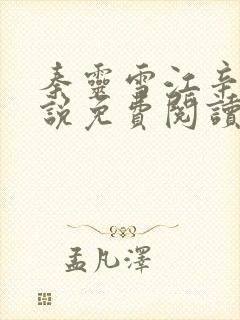 秦靈雪江辛
說免費閱讀
孟凡澤